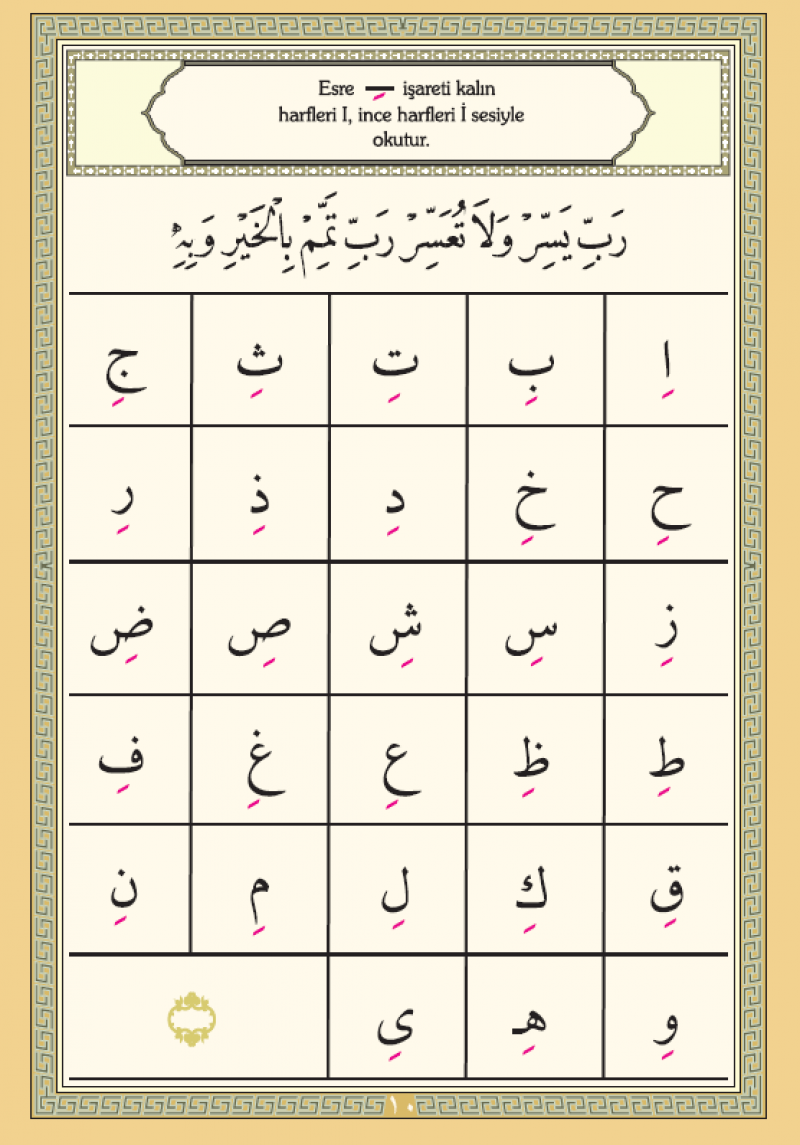 Esre ـِ işareti kalın
harfleri I, ince harfleri İ sesiyle
okutur.
رَبِّ يَسِّرْ وَلَا تُعَسِّرْ رَبِّ تَمِّمْ بِالْخَيْرِ وَبِهِ
اِ بِ تِ ثِ جِ
حِ خِ دِ ذِ رِ
زِ سِ شِ صِ ضِ
طِ ظِ عِ غِ فِ
قِ كِ لِ مِ نِ
وِ هِـ یِ
١٠